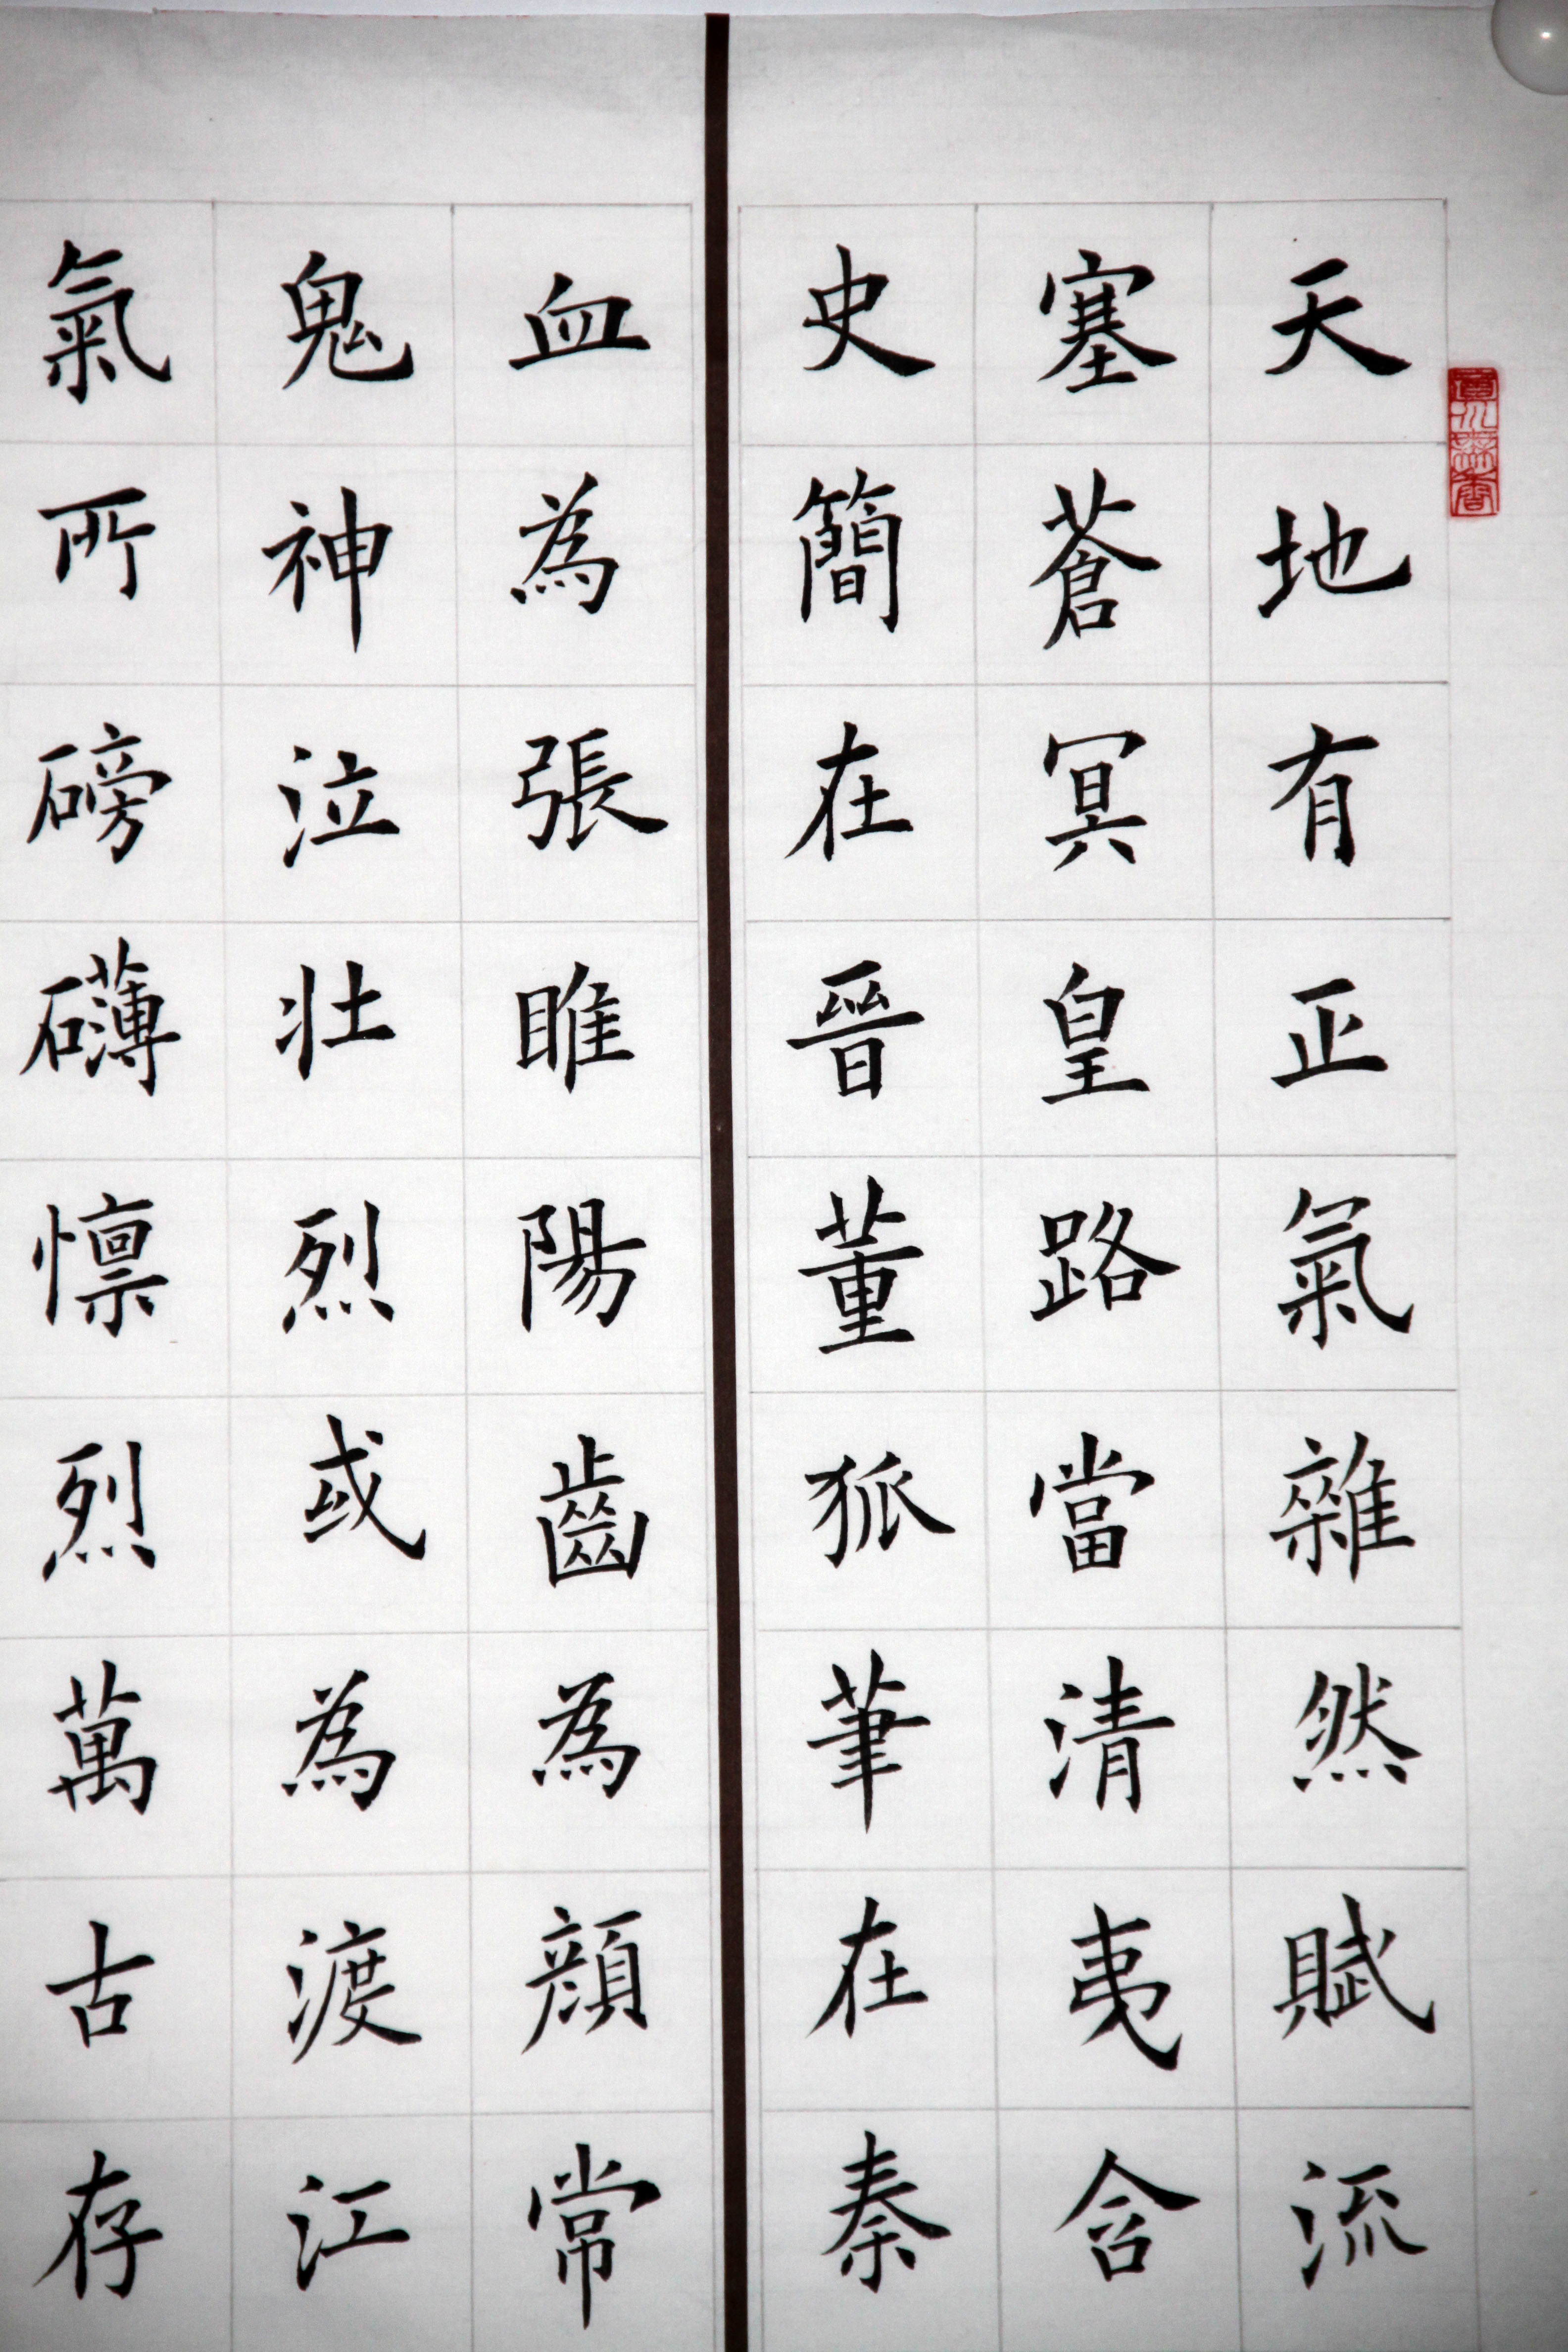 天地有正氣雜然賦流
塞蒼冥皇路當清夷含
史簡在晉董狐筆在秦
血為張睢陽齒為顏常
鬼神泣壯烈或為渡江
氣所磅礴懍烈萬古存